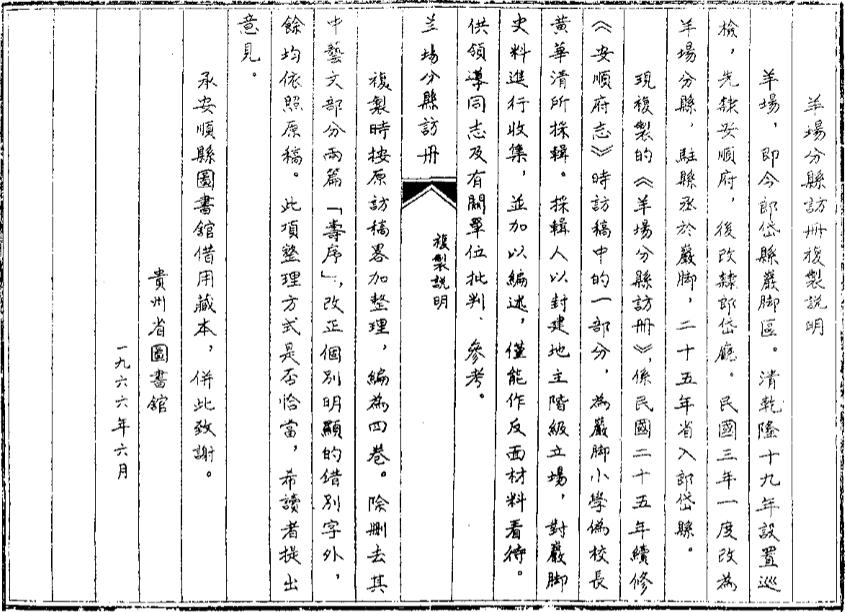 羊場分縣訪冊複製説明
羊場，即今郎岱縣巖脚區。清乾隆十九年設置巡
檢，先隸安順府，後改隸郎岱廳。民國三年一度改為
羊場分縣，駐縣丞於巖脚，二十五年省入郎岱縣。
現複製的《羊場分縣訪冊》，係民國二十五年續修
《安順府志》時訪稿中的一部分，為巖脚小學偽校長
黄華清所採輯。採輯人以封建地主階級立場，對巖脚
史料進行收集，並加以編述，僅能作反面材料看待。
供領導同志及有關單位批判、參考。
羊場分縣訪冊
複製説明
複製時按原訪稿畧加整理，編為四卷。除刪去其
中藝文部分兩篇「壽序」，改正個別明顯的錯別字外，
餘均依照原稿。此項整理方式是否恰當，希讀者提出
意見。
承安順縣圖書館借用藏本，併此致謝。
貴州省圖書館
一九六六年六月